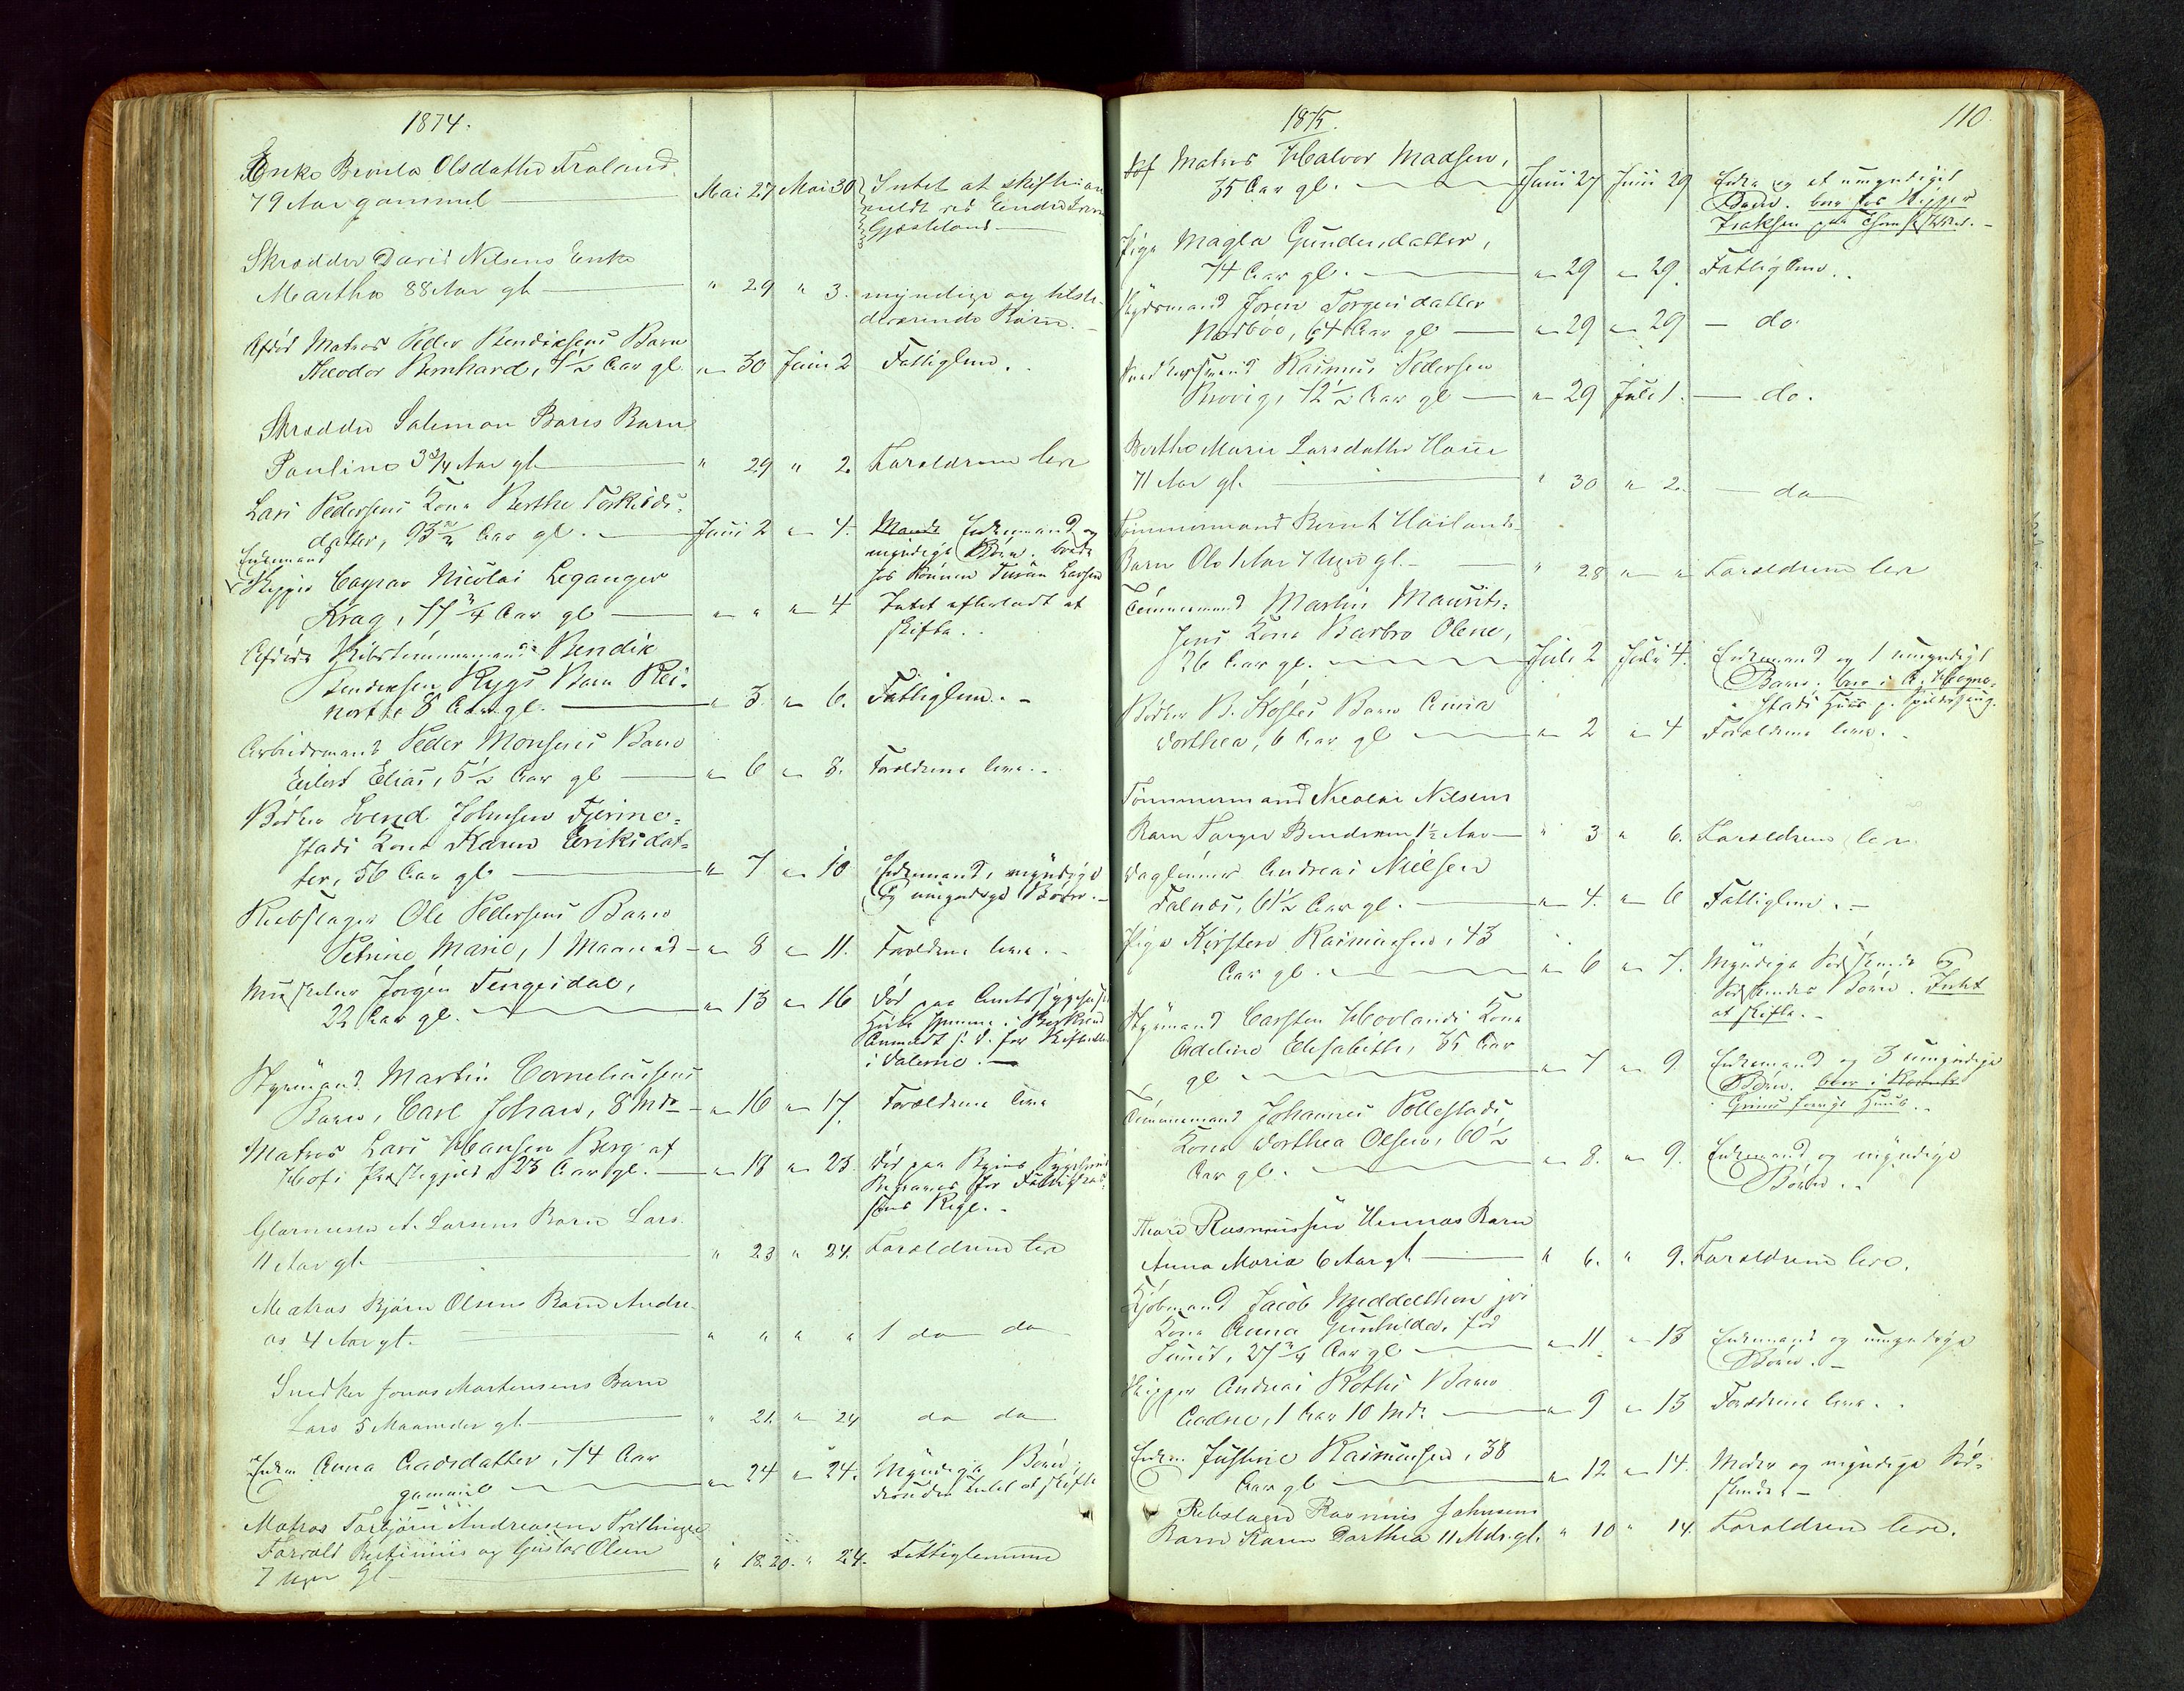 1874.
Enke Olsdatter Troland
79 Aar gammel Mai 27 Mai 30 Intet at skifte an
meldt ved Endre
Gjæsteland
Skrædder David Nilsens Enke
Martha 88 Aar gl " 29 " 3. myndige og tilste
deværende Børn.
Afdød Matros Peder Bendiksens Barn
Theodor Bernhard, 1½ Aar gl. " 30 Juni 2 Fattiglem.
Skrædder Salemon Barn
Pauline 3¾ Aar gl " 29 " 2. Forældrene leve
Lars Pedersens Kone Berthe Torkilds-
datter, Aar gl. Juni 2 " 4. Mand Enkemand og
myndige Børn. boede
hos Lassen
Enkemand
Skipper Caspar Nicolai Leganger
Krag, 77¾ Aar gl " " " 4 Intet efterladt at
skifte.
Afdøde Skibstømmermand Bendik
Bendiksen Rygs Barn Rei-
nert 8 Aar gl. " 3. " 6. Fattiglem.
Arbeidsmand Peder Monsens Barn
Eilert Elias, 5½ Aar gl " 6 " 8. Forældrene leve.
Bødker Svend Johnsen Tjerine-
stads Kone Karen Eriksdat-
ter, 56 Aar gl " 7 " 10 Enkemand, myndige
og umyndige Børn.
Reebslager Ole Pedersens Barn
Petrine Marie, 1 Maaned " 8 " 11. Forældrene leve.
Jørgen Tengesdal,
22 Aar gl. " 13 " 16 Død paa Amtssygehuset
i Dalerne.
Styrmand Martin Corneliussens
Barn, Carl Johan, 8 Mdr " 16 " 17. Forældrene leve
Matros Lars Hansen Berg af
Præstegjeld 23 Aar gl. " 18 " 23. Død paa Byens Sygehuus
Begraves for
sens Regl.
A. Larsens Barn Lars
11 Aar gl. " 23 " 24. Forældrene leve
Matros Bjørn Olsens Barn Andre-
as 4 Aar gl. " " " " 1 do do
Snedker Jonas Mortensens Barn
Lars 5 Maaneder gl. " 21. " 24 do do
Enken Anna Aadsdatter, 74 Aar
gammel " 24 " 24. Myndige Børn;
desuden Intet at skifte
Matros Torbjørn Andreasens Tvillinger
Torvald og Gustav Olsen
7 Uger gl " 18.20. " 24. Fattiglemmer
1875.
110.
Matros Halvor Madsen,
35 Aar gl. Juni 27 Juni 29 Enke og et umyndigt
Barn. boer hos Skipper
Isaksen paa
Pige Magla Gundersdatter,
74 Aar gl. " 29 " 29. Fattiglem.
Joren Torgersdatter
Nordboe, 64 Aar gl " 29 " 29 do
Rasmus Pedersen
72½ Aar gl " 29 Juli 1. do.
Berthe Marie Larsdatter Haue
71 Aar gl. " 30 " 2. do
Tømmermand Bernt Høilands
Barn Ole 1 Aar 7 Uger gl. " 28 " " Forældrene leve
Tømmermand Martin Maurits-
sens Kone Barbro Olene,
26 Aar gl. Juli 2 Juli 4. Enkemand og 1 umyndigt
Barn. boer i A. Hogne-
stads Huus
Bødker B. Barn Anna
Dorthea, 6 Aar gl " 2 " 4 Forældrene leve.
Tømmermand Nicolai Nilsens
Barn Torger Bendixen 1½ Aar " 3 " 6. Forældrene leve.
Dagleiner Andreas Nielsen
Falnæs, 61½ Aar gl. " 4. " 6 Fattiglem.
Pige Kirsten Rasmussen, 43
Aar gl. " 6 " 7. Myndige Sødskende og
Sødskendes Børn. Intet
at skifte.
Styrmand Carsten Hovlands Kone
Adeline Elisabeth, 35 Aar
gl " 7 " 9 Enkemand og 3 umyndige
Børn. boer i
Huus.
Tømmermand Johannes Pollestads
Kone Dorthea Olsen, 60½
Aar gl. " 8. " 9. Enkemand og myndige
Børn.
Thore Rasmussen Hennas Barn
Anna Maria 6 Aar gl. " 6. " 9. Forældrene leve.
Kjøbmand Jacob Middelthon jr's
Kone Anna Gunhilda, fød
27¾ Aar gl " 11 " 13 Enkemand og umyndige
Børn.
Skipper Andreas Roths Barn
Aadne, 1 Aar 10 Mdr. " 9 " 13 Forældrene leve.
Enken Justine Rasmussen, 38
Aar gl " 12 " 14. Moder og myndige Sød-
skende.
Rebslager Rasmus Johnsens
Barn Karen Dorthea 11 Mdr. gl. " 10 " 14. Forældrene leve.